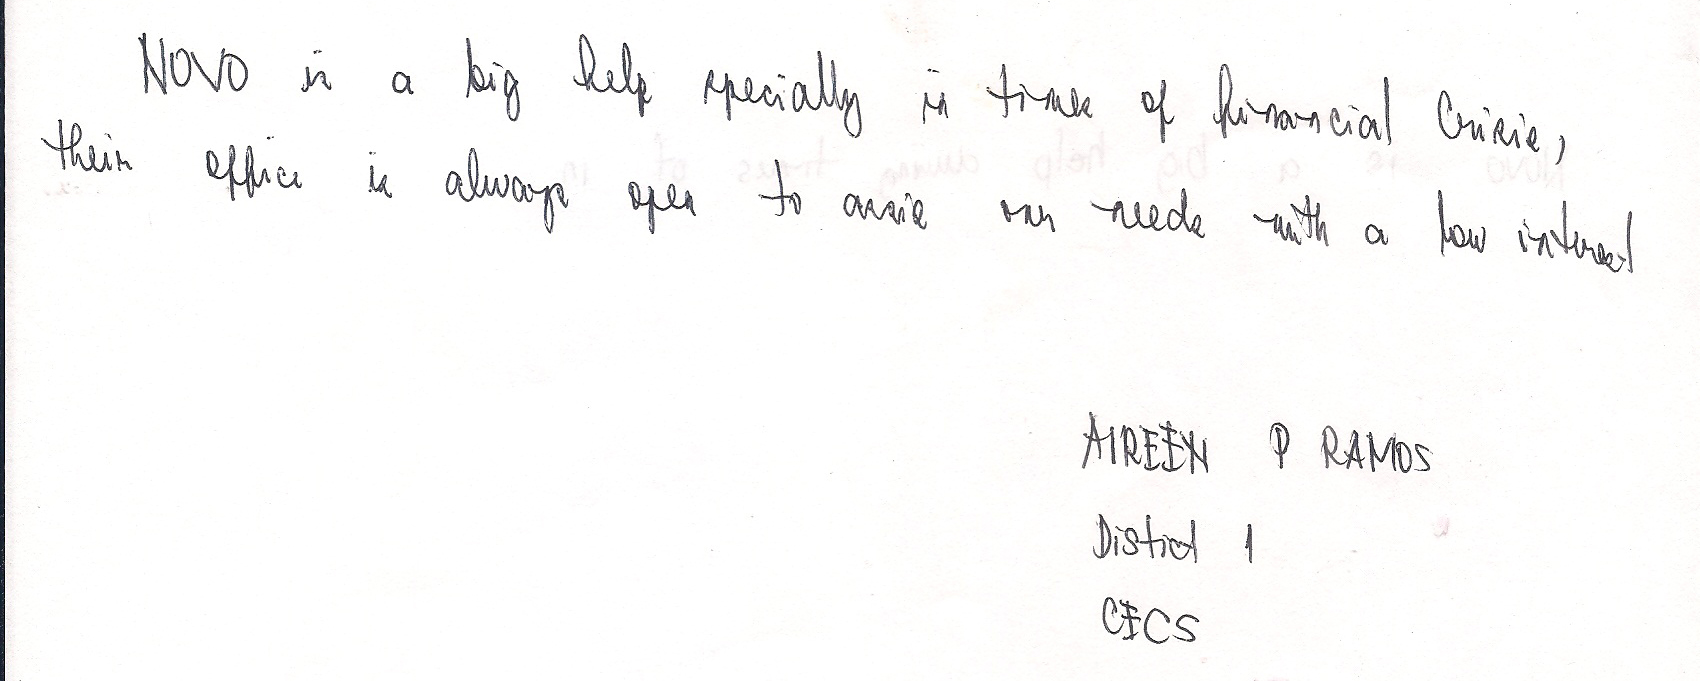 NOVO is a big help specially in times of financial crisis,
their office is always open to assis our needs with a low interest
AIREEN P RAMOS
District 1
CECS